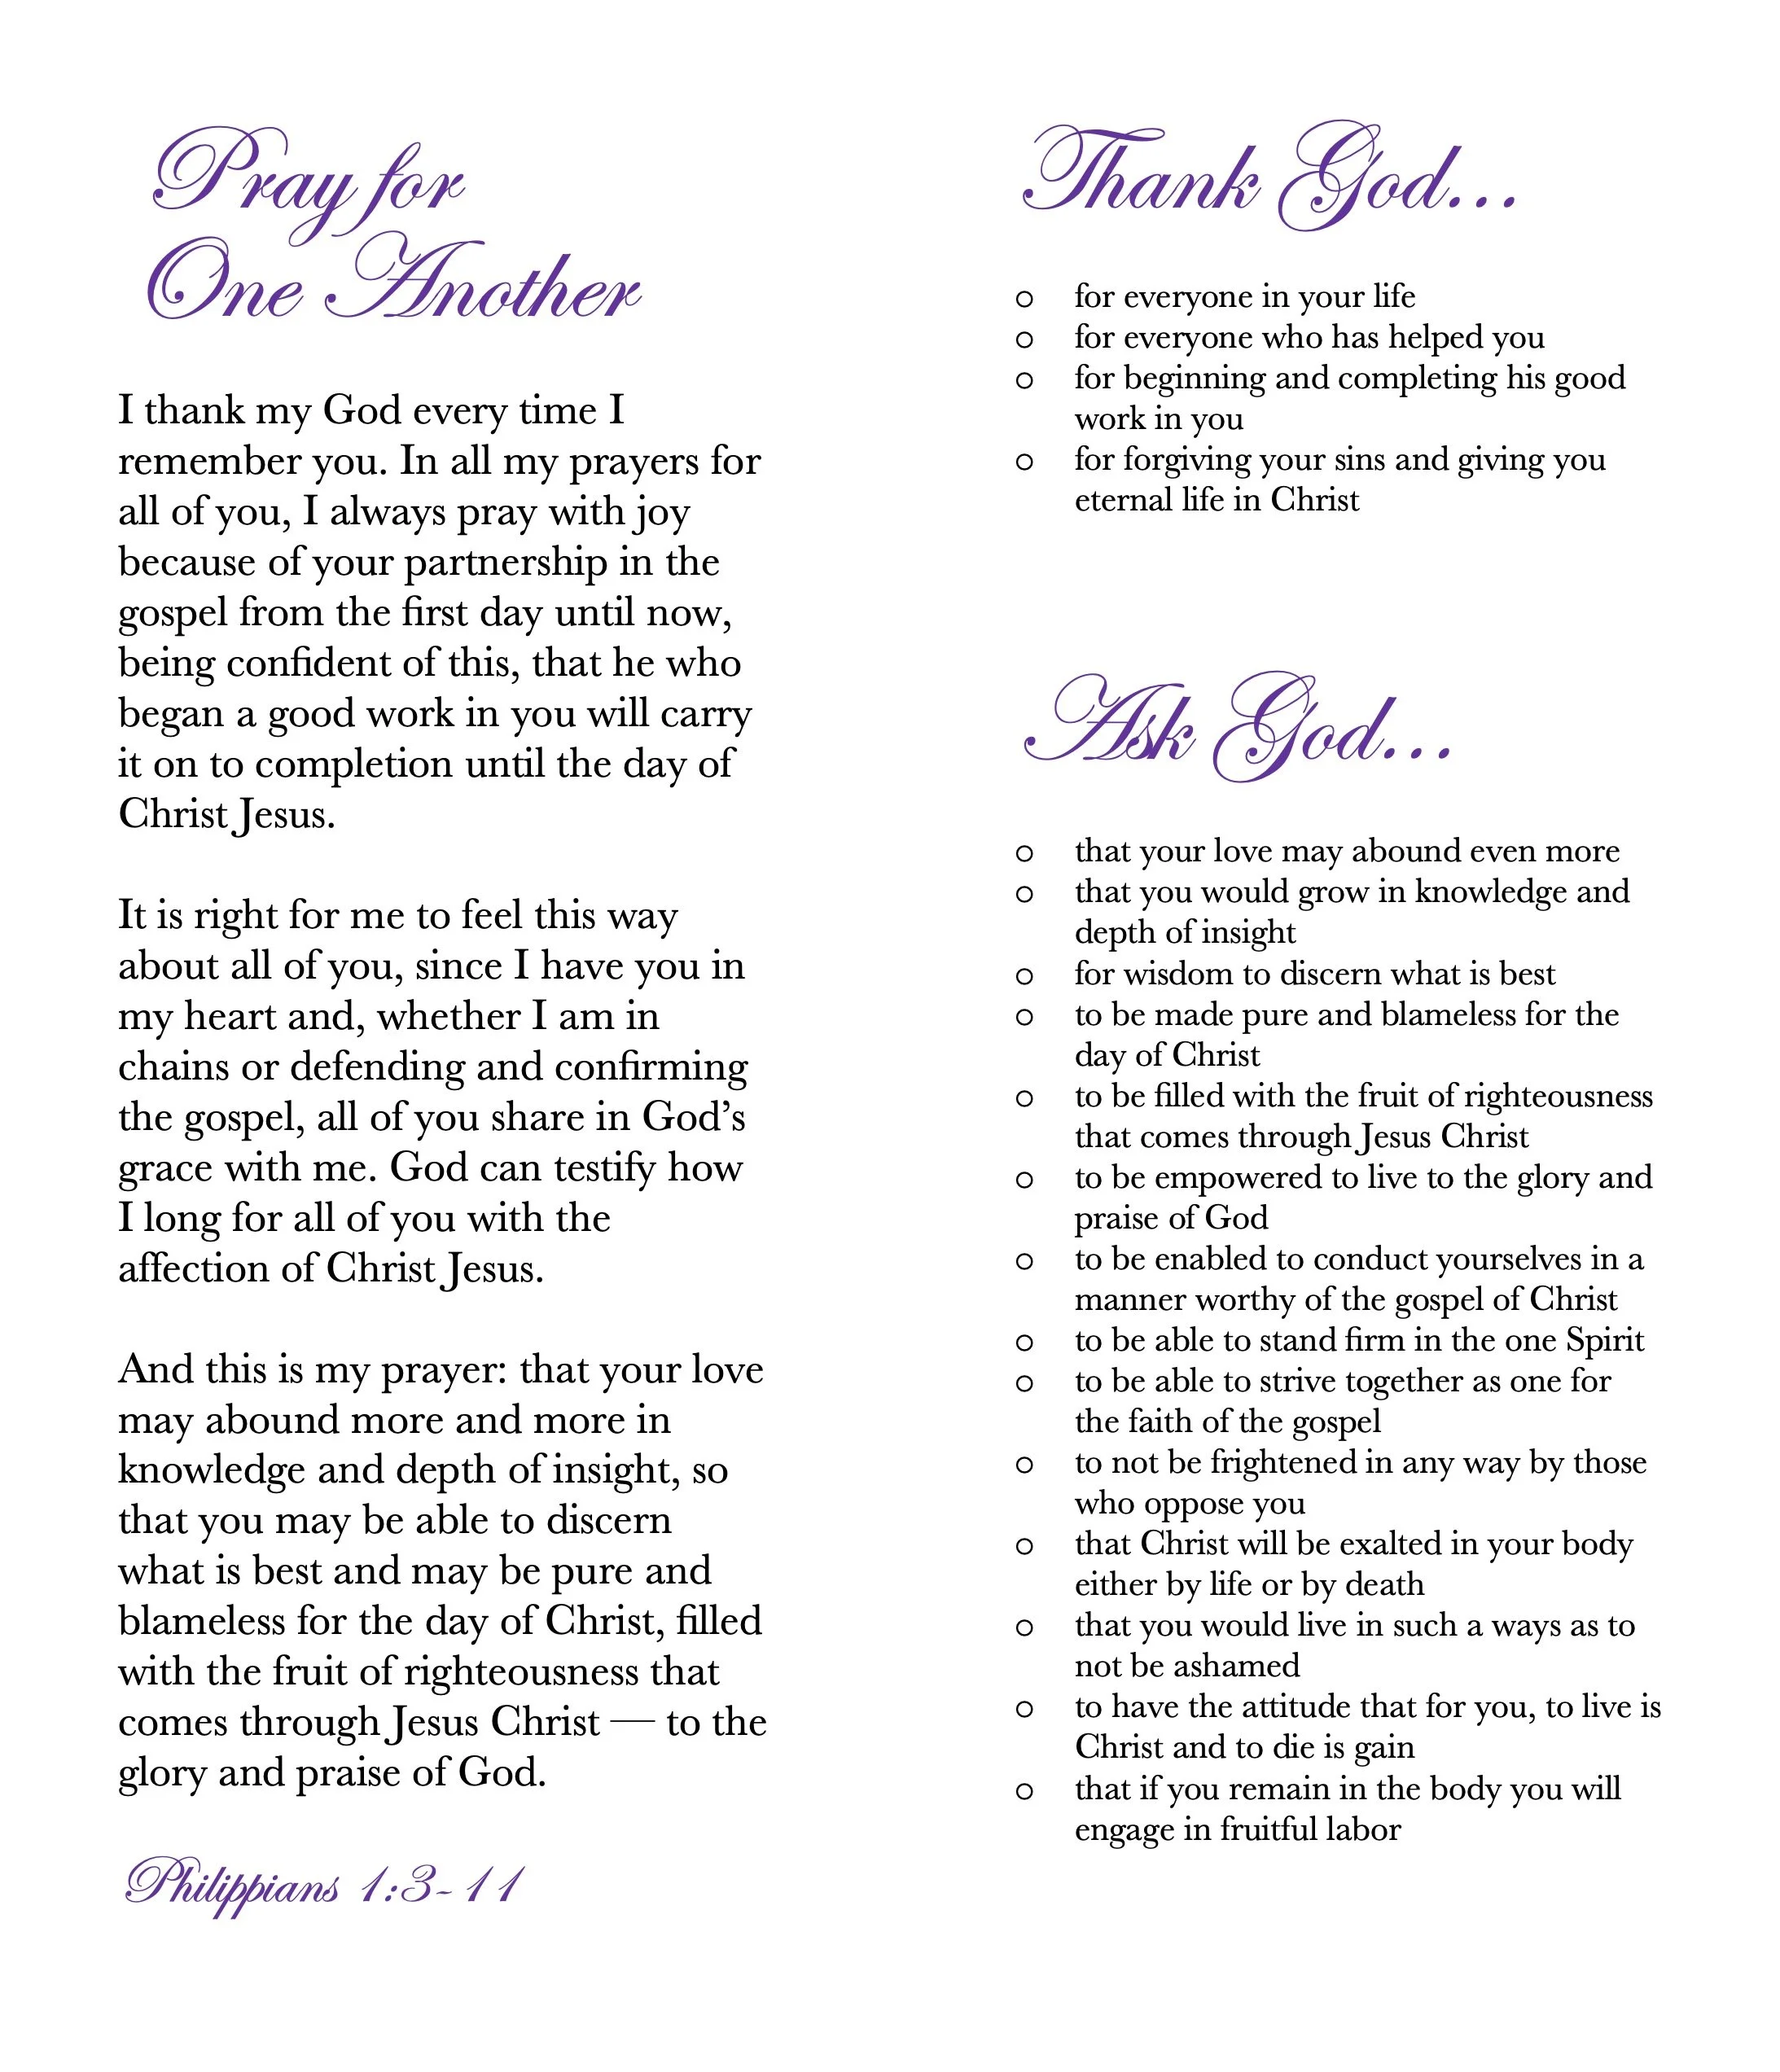 Pray for
One Another
I thank my God every time I
remember you. In all my prayers for
all of you, I always pray with joy
because of your partnership in the
gospel from the first day until now,
being confident of this, that he who
began a good work in you will carry
it on to completion until the day of
Christ Jesus.
It is right for me to feel this way
about all of you, since I have you in
my heart and, whether I am in
chains or defending and confirming
the gospel, all of you share in God’s
grace with me. God can testify how
I long for all of you with the
affection of Christ Jesus.
And this is my prayer: that your love
may abound more and more in
knowledge and depth of insight, so
that you may be able to discern
what is best and may be pure and
blameless for the day of Christ, filled
with the fruit of righteousness that
comes through Jesus Christ — to the
glory and praise of God.
Philippians 1:3-11
Thank God...
o for everyone in your life
o for everyone who has helped you
o for beginning and completing his good
work in you
o for forgiving your sins and giving you
eternal life in Christ
Ask God...
o that your love may abound even more
o that you would grow in knowledge and
depth of insight
o for wisdom to discern what is best
o to be made pure and blameless for the
day of Christ
o to be filled with the fruit of righteousness
that comes through Jesus Christ
o to be empowered to live to the glory and
praise of God
o to be enabled to conduct yourselves in a
manner worthy of the gospel of Christ
o to be able to stand firm in the one Spirit
o to be able to strive together as one for
the faith of the gospel
o to not be frightened in any way by those
who oppose you
o that Christ will be exalted in your body
either by life or by death
o that you would live in such a ways as to
not be ashamed
o to have the attitude that for you, to live is
Christ and to die is gain
o that if you remain in the body you will
engage in fruitful labor